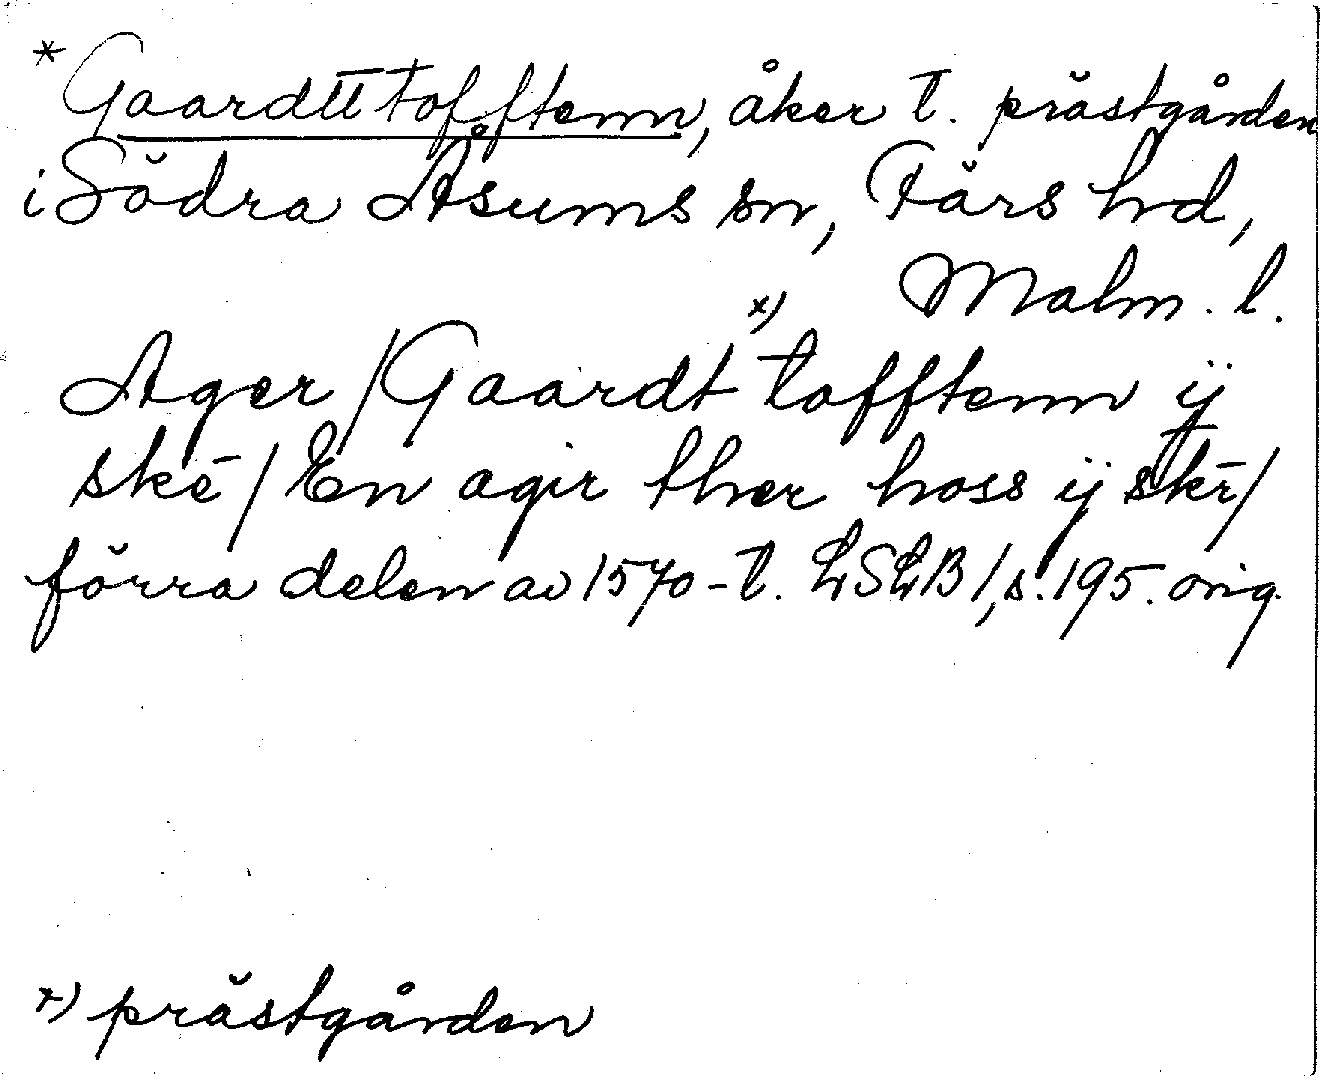 * Gaardttofftenn, åker t. prästgården
i Södra Åsums sn, Färs hd,
Malm. l.
Ager / Gaardt x) tofftenn ij
skē / En agir ther hoss ij skē /
förra delen av 1570-t. LSLB I, s. 195. orig.
x) prästgården